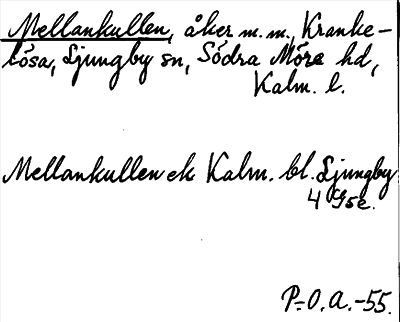 Mellankullen, åker m.m., Kranke-
lösa, Ljungby sn, Södra Möre hd,
Kalm. l.
Mellankullen ek Kalm. bl. Ljungby
4 Gse.
P.-O.A.-55.